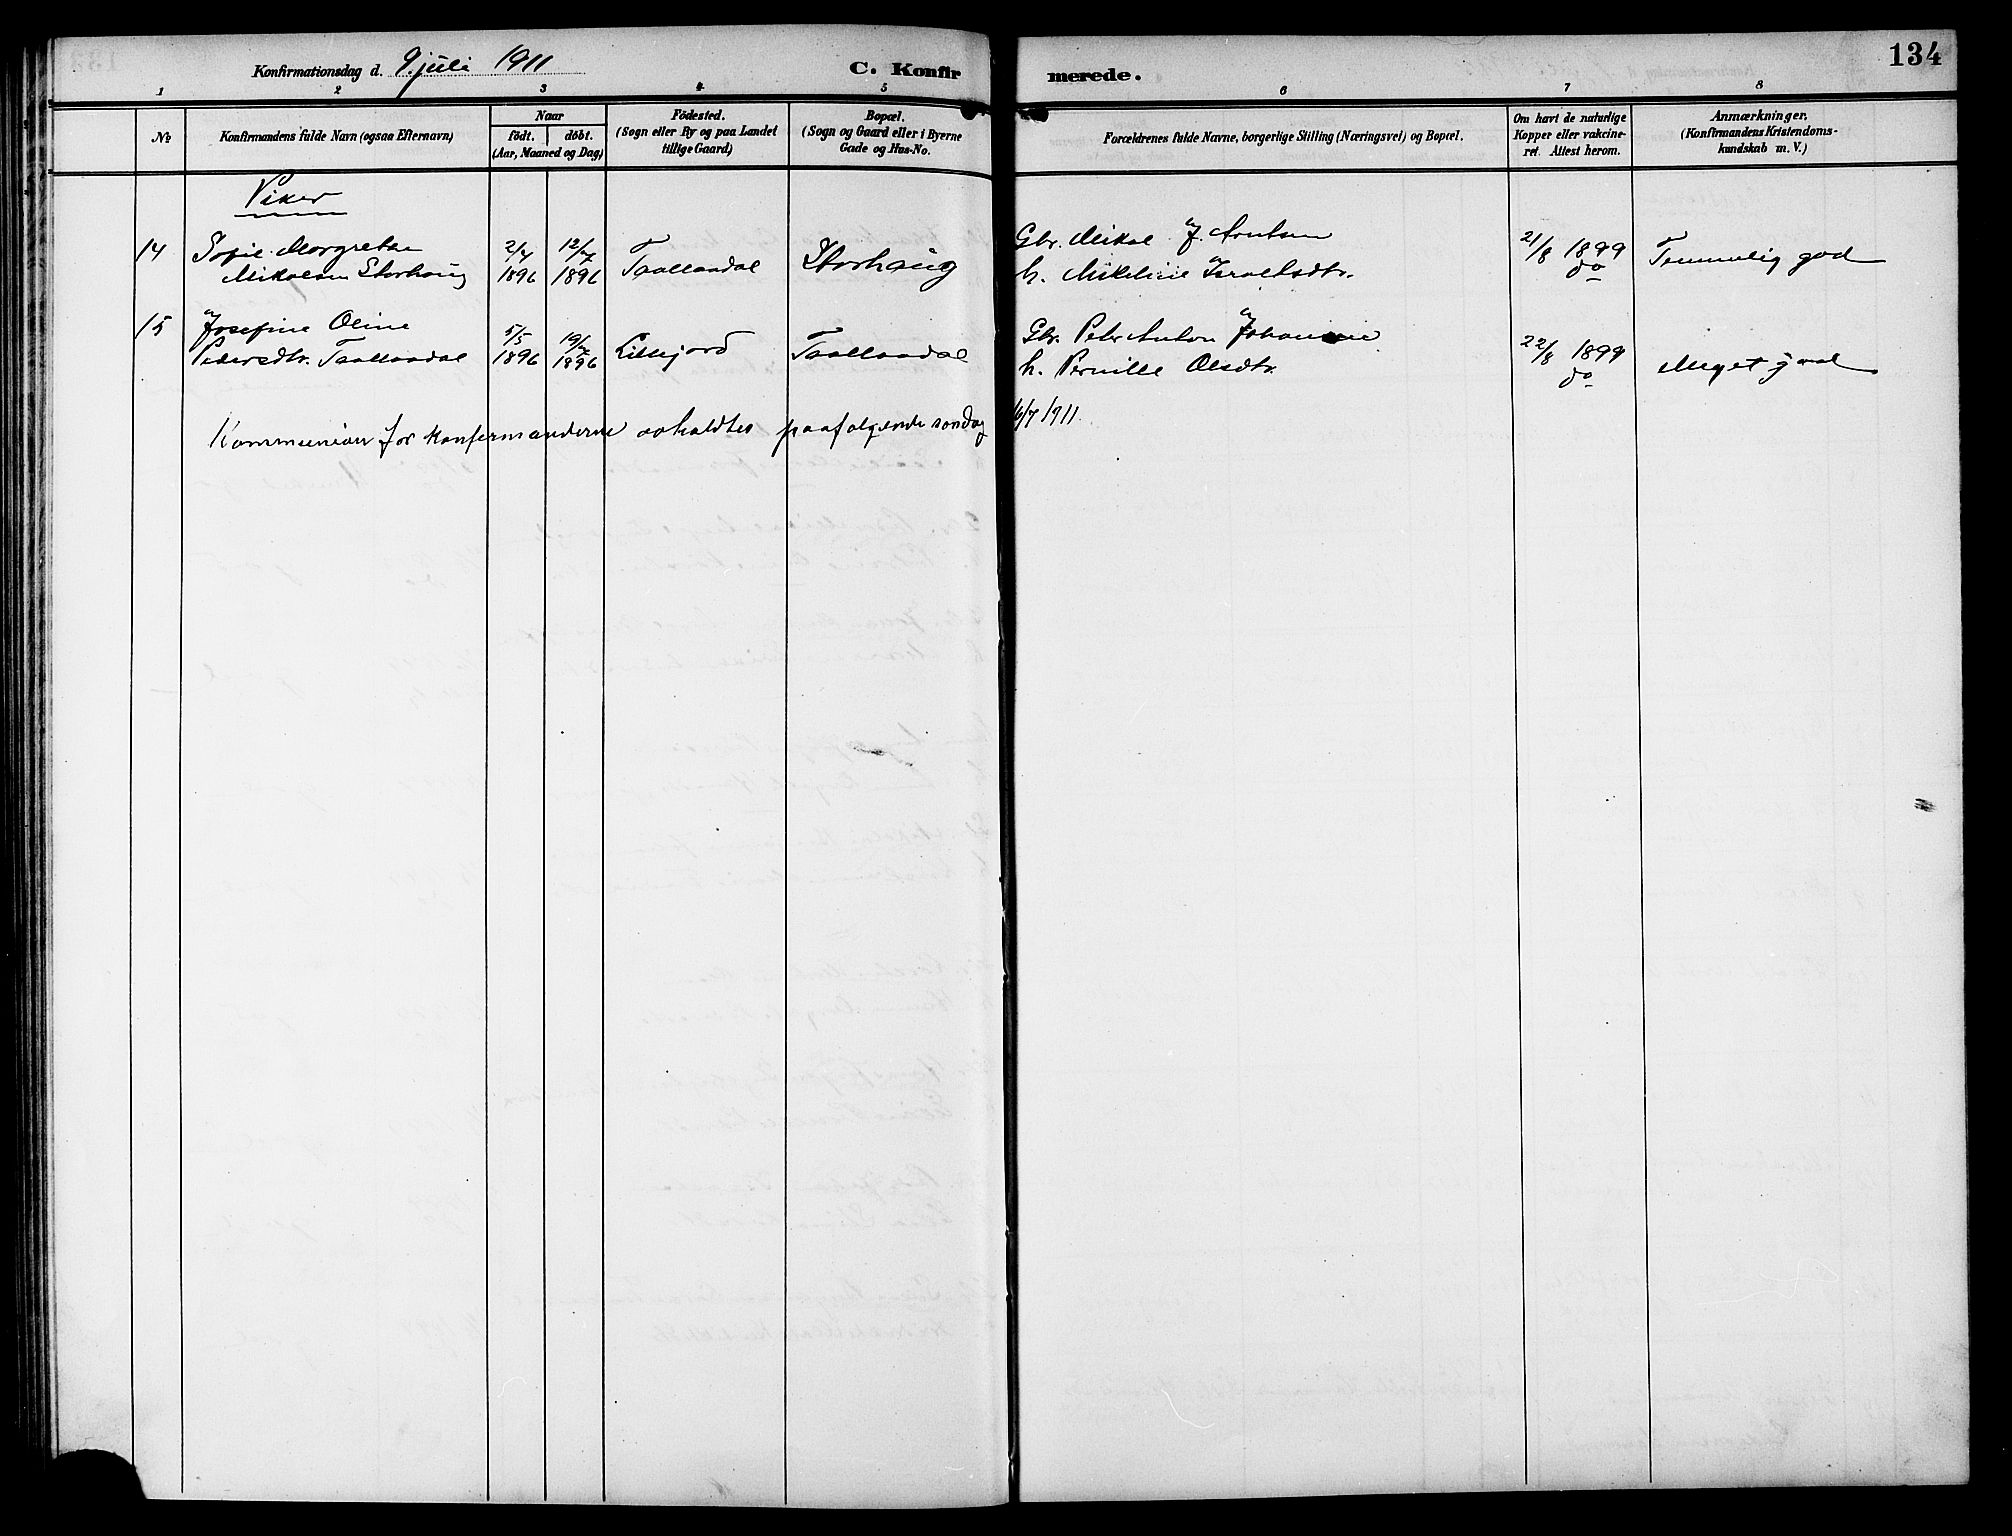 Konfirmationsdag d. 9. juli 1911
C. Konfirmerede.
134
1 2 3 4 5 6 7 8
No
Konfirmandens fulde Navn (ogsaa Efternavn)
Naar
födt. döbt.
(Aar, Maaned og Dag)
Födested.
(Sogn eller By og paa Landet
tillige Gaard)
Bopæl.
(Sogn og Gaard eller i Byerne
Gade og Hus-No.
Forældrenes fulde Navne, borgerlige Stilling (Næringsvei) og Bopæl.
Om havt de naturlige
Kopper eller vakcine-
ret. Attest herom.
Anmærkninger.
(Konfirmandens Kristendoms-
kundskab m. V.)
Piker
14 Sofie Margrethe 2/4 12/7 Gbr. Mikal J. Arntsen 21/8 1899
Mikalsen Storhaug 1896 1896 Taallaadal Storhaug h. Mikeline Israelsdtr. do Temmelig god
15 Josefine Oline 5/5 19/7 Gbr. Peder Anton Johansen
Pedersdtr. Taallaadal 1896 1896 Lillejord Taallaadal h. Pernille Olsdtr. 22/8 1899 do Meget god
Kommunion for konfermanderne avholdtes paafølgende søndag 16/7 1911.